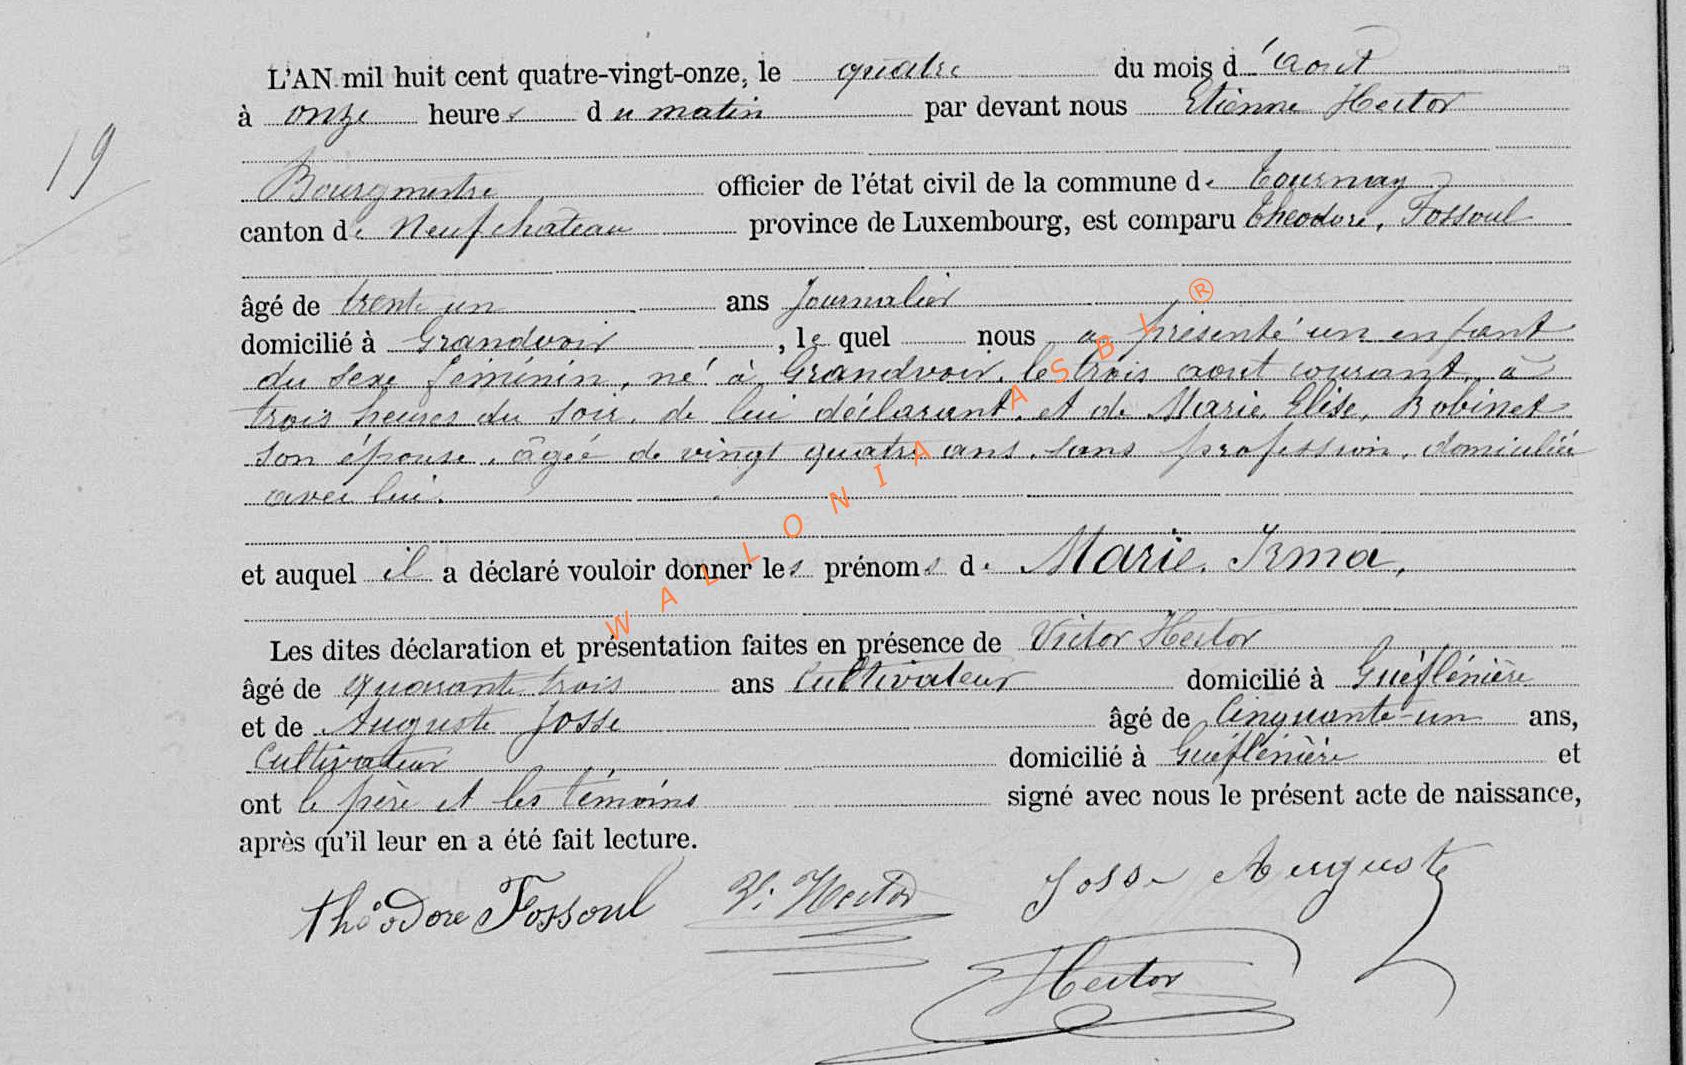 19
L'AN mil huit cent quatre-vingt-onze, le quatre du mois d'Aout
à onze heures du matin par devant nous Etienne Hector
Bourgmestre officier de l'état civil de la commune de Tournay
canton de Neufchateau province de Luxembourg, est comparu Théodore, Fossoul
âgé de trente un ans Journalier
domicilié à Grandvoir, lequel nous a présenté un enfant
du sexe féminin, né à Grandvoir, le trois aout courant, à
trois heures du soir, de lui déclarant, et de Marie, Elise, Robinet
son épouse, âgée de vingt quatre ans, sans profession, domiciliée
avec lui.
et auquel il a déclaré vouloir donner les prénoms de Marie, Irma,
Les dites déclaration et présentation faites en présence de Victor Hector
âgé de quarante trois ans Cultivateur domicilié à Gueflénière
et de Auguste Josse âgé de Cinquante-un ans,
Cultivateur domicilié à Gueflénière et
ont le père et les témoins signé avec nous le présent acte de naissance,
après qu'il leur en a été fait lecture.
théodore Fossoul V. Hector Josse Auguste
Hector
WALLONIA ASBL ®